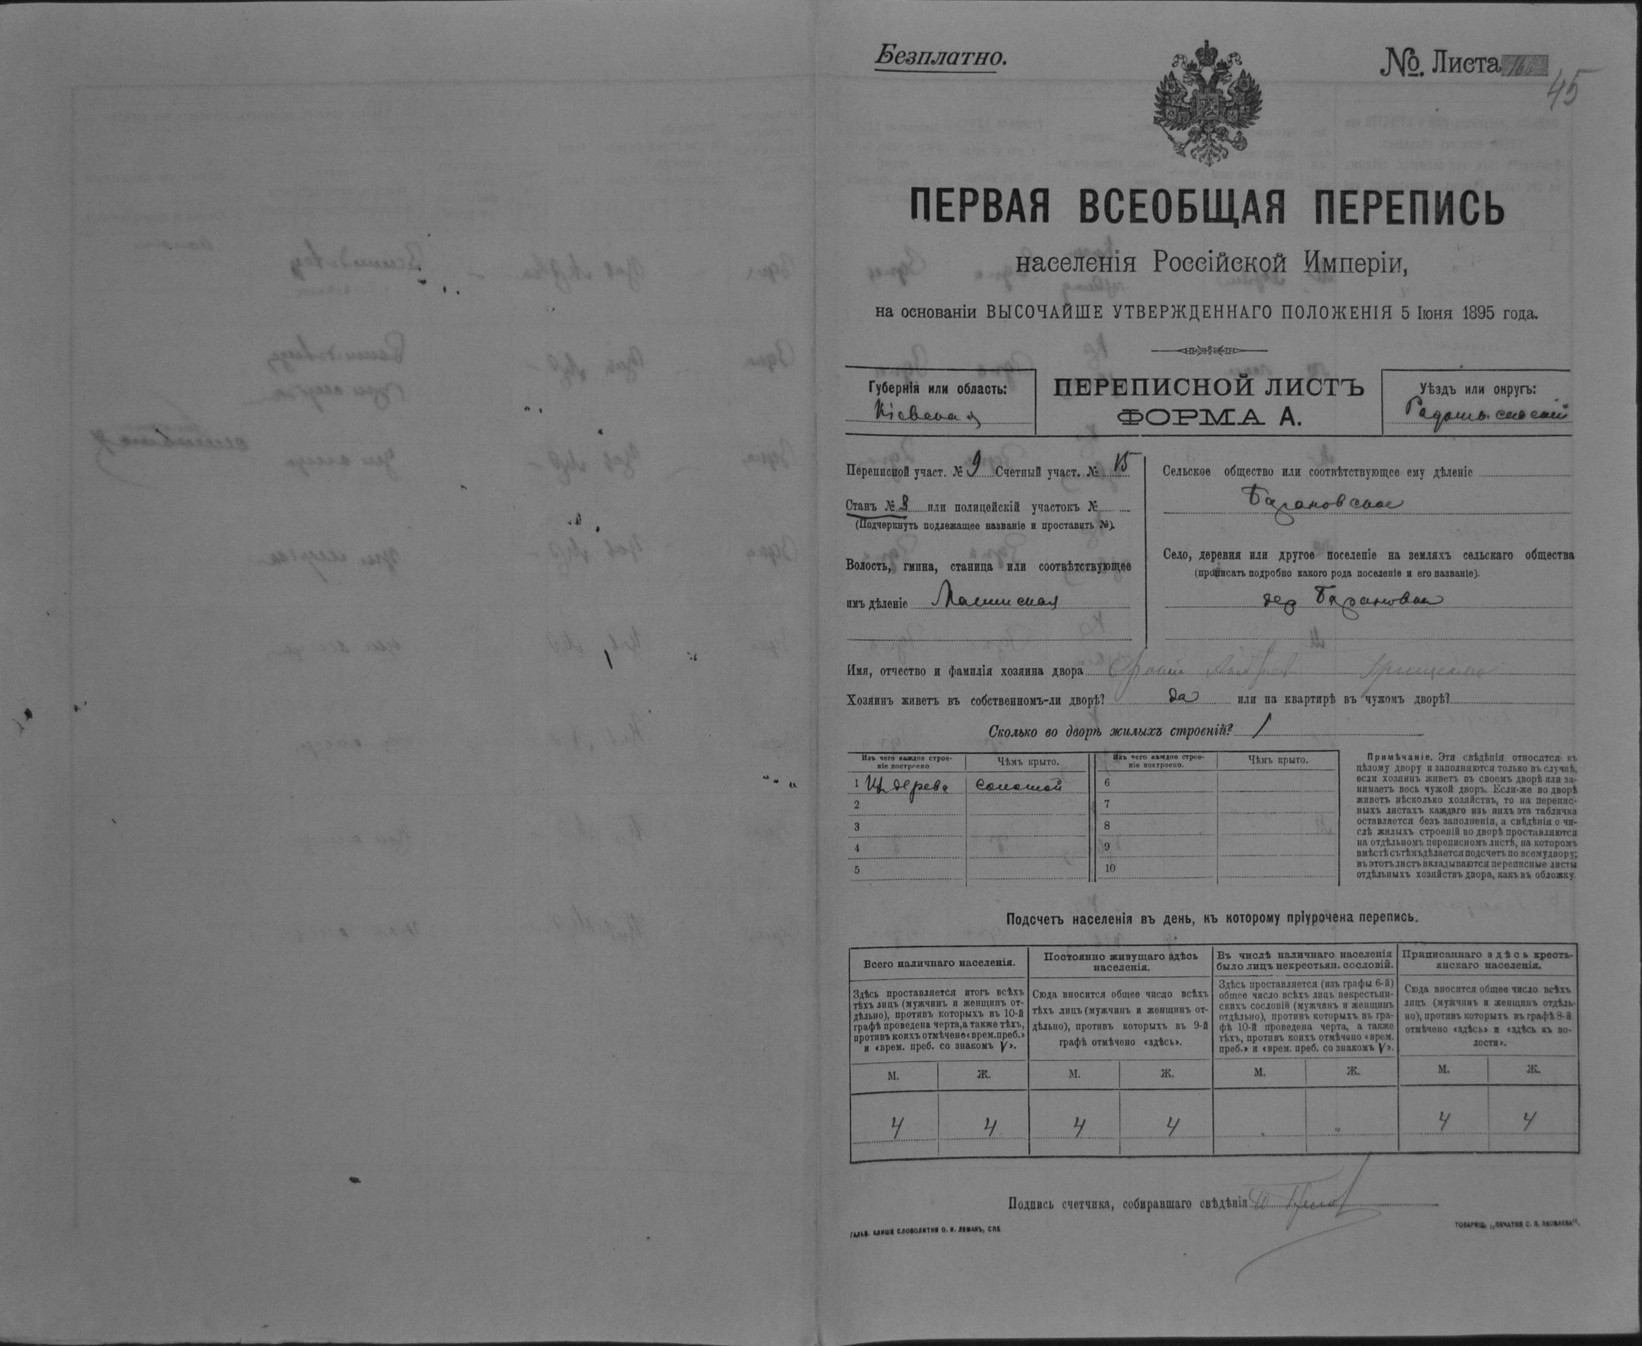 Безплатно.
№. Листа
45
ПЕРВАЯ ВСЕОБЩАЯ ПЕРЕПИСЬ
населенія Россійской Имперіи,
на основаніи ВЫСОЧАЙШЕ УТВЕРЖДЕННАГО ПОЛОЖЕНІЯ 5 Іюня 1895 года.
Губернія или область:
Кіевская
ПЕРЕПИСНОЙ ЛИСТЪ
ФОРМА А.
Уѣздъ или округъ:
Радомысльскій
Переписной участ. № 9 Счетный участ. № 15
Станъ № 3 или полицейскій участокъ №
(Подчеркнуть подлежащее названіе и проставить №).
Волость, гмина, станица или соотвѣтствующее
имъ дѣленіе Малинская
Сельское общество или соотвѣтствующее ему дѣленіе
Барановское
Село, деревня или другое поселеніе на земляхъ сельскаго общества
(прописать подробно какого рода поселеніе и его названіе).
дер Барановка
Имя, отчество и фамилія хозяина двора
Хозяинъ живетъ въ собственномъ-ли дворѣ? да или на квартирѣ въ чужомъ дворѣ?
Сколько во дворѣ жилыхъ строеній? 1
Изъ чего каждое строе-
ніе построено
Чѣмъ крыто.
1 Изъ дерева соломой
2
3
4
5
Изъ чего каждое строе-
ніе построено.
Чѣмъ крыто.
6
7
8
9
10
Примѣчаніе. Эти свѣдѣнія относятся къ
цѣлому двору и заполняются только въ случаѣ,
если хозяинъ живетъ въ своемъ дворѣ или за-
нимаетъ весь чужой дворъ. Если-же во дворѣ
живетъ нѣсколько хозяйствъ, то на перепис-
ныхъ листахъ каждаго изъ нихъ эта табличка
оставляется безъ заполненія, а свѣдѣнія о чи-
слѣ жилыхъ строеній во дворѣ проставляются
на отдѣльномъ переписномъ листѣ, на которомъ
вмѣстѣ съ тѣмъ дѣлается подсчетъ по всему двору;
въ этотъ листъ вкладываются переписные листы
отдѣльныхъ хозяйствъ двора, какъ въ обложку.
Подсчетъ населенія въ день, къ которому пріурочена перепись.
Всего наличнаго населенія.
Здѣсь проставляется итогъ всѣхъ
тѣхъ лицъ (мужчинъ и женщинъ от-
дѣльно), противъ которыхъ въ 10-й
графѣ проведена черта, а также тѣхъ,
противъ коихъ отмѣчено «врем. преб.»
и «врем. преб. со знакомъ V».
М. Ж.
4 4
Постоянно живущаго здѣсь
населенія.
Сюда вносится общее число всѣхъ
тѣхъ лицъ (мужчинъ и женщинъ от-
дѣльно), противъ которыхъ въ 9-й
графѣ отмѣчено «здѣсь».
М. Ж.
4 4
Въ числѣ наличнаго населенія
было лицъ некрестьян. сословій.
Здѣсь проставляется (изъ графы 6-й)
общее число всѣхъ лицъ некрестьян-
скихъ сословій (мужчинъ и женщинъ
отдѣльно), противъ которыхъ въ гра-
фѣ 10-й проведена черта, а также
тѣхъ, противъ коихъ отмѣчено «врем.
преб.» и «врем. преб. со знакомъ V».
М. Ж.
Приписаннаго здѣсь кресть-
янскаго населенія.
Сюда вносится общее число всѣхъ
лицъ (мужчинъ и женщинъ отдѣль-
но), противъ которыхъ въ графѣ 8-й
отмѣчено «здѣсь» и «здѣсь къ во-
лости».
М. Ж.
4 4
Подпись счетчика, собиравшаго свѣдѣнія
ГАЛЬВ. КЛИШЕ СЛОВОЛИТНИ О. И. ЛЕМАНЪ, СПБ
ТОВАРИЩ. „ПЕЧАТНЯ С. П. ЯКОВЛЕВА".